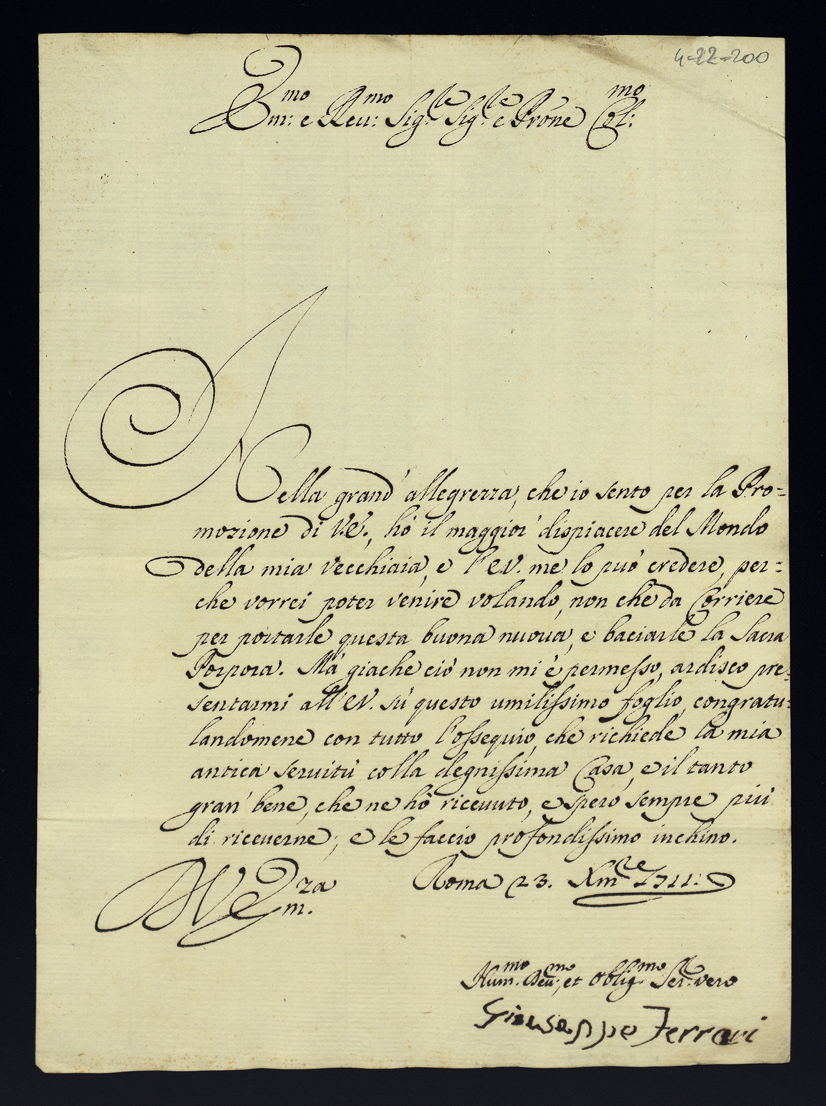 4-22-200
Em:mo e Reu:mo Sig:re Sig:re e Prone Col:mo
Nella grand' allegrezza, che io sento per la Pro=
mozione di VE., hò il maggior dispiacere del Mondo
della mia vecchiaia, e l'EV. me lo può credere, per=
che vorrei poter venire volando, non che da Corriere
per portarle questa buona nuova, e baciarle la Sacra
Porpora. Mà giache ciò non mi è permesso, ardisco pre=
sentarmi all'EV. sù questo umilissimo foglio, congratu=
landomene con tutto l'ossequio, che richiede la mia
antica servitù colla degnissima Casa, e il tanto
gran' bene, che ne hò ricevuto, e spero sempre più
di riceverne; e le faccio profondissimo inchino.
Roma 23. Xm:re 1711.
DVEm:za
Hum:mo Deu:mo, et Oblig:mo Ser:re vero
Giuseppe Ferrari